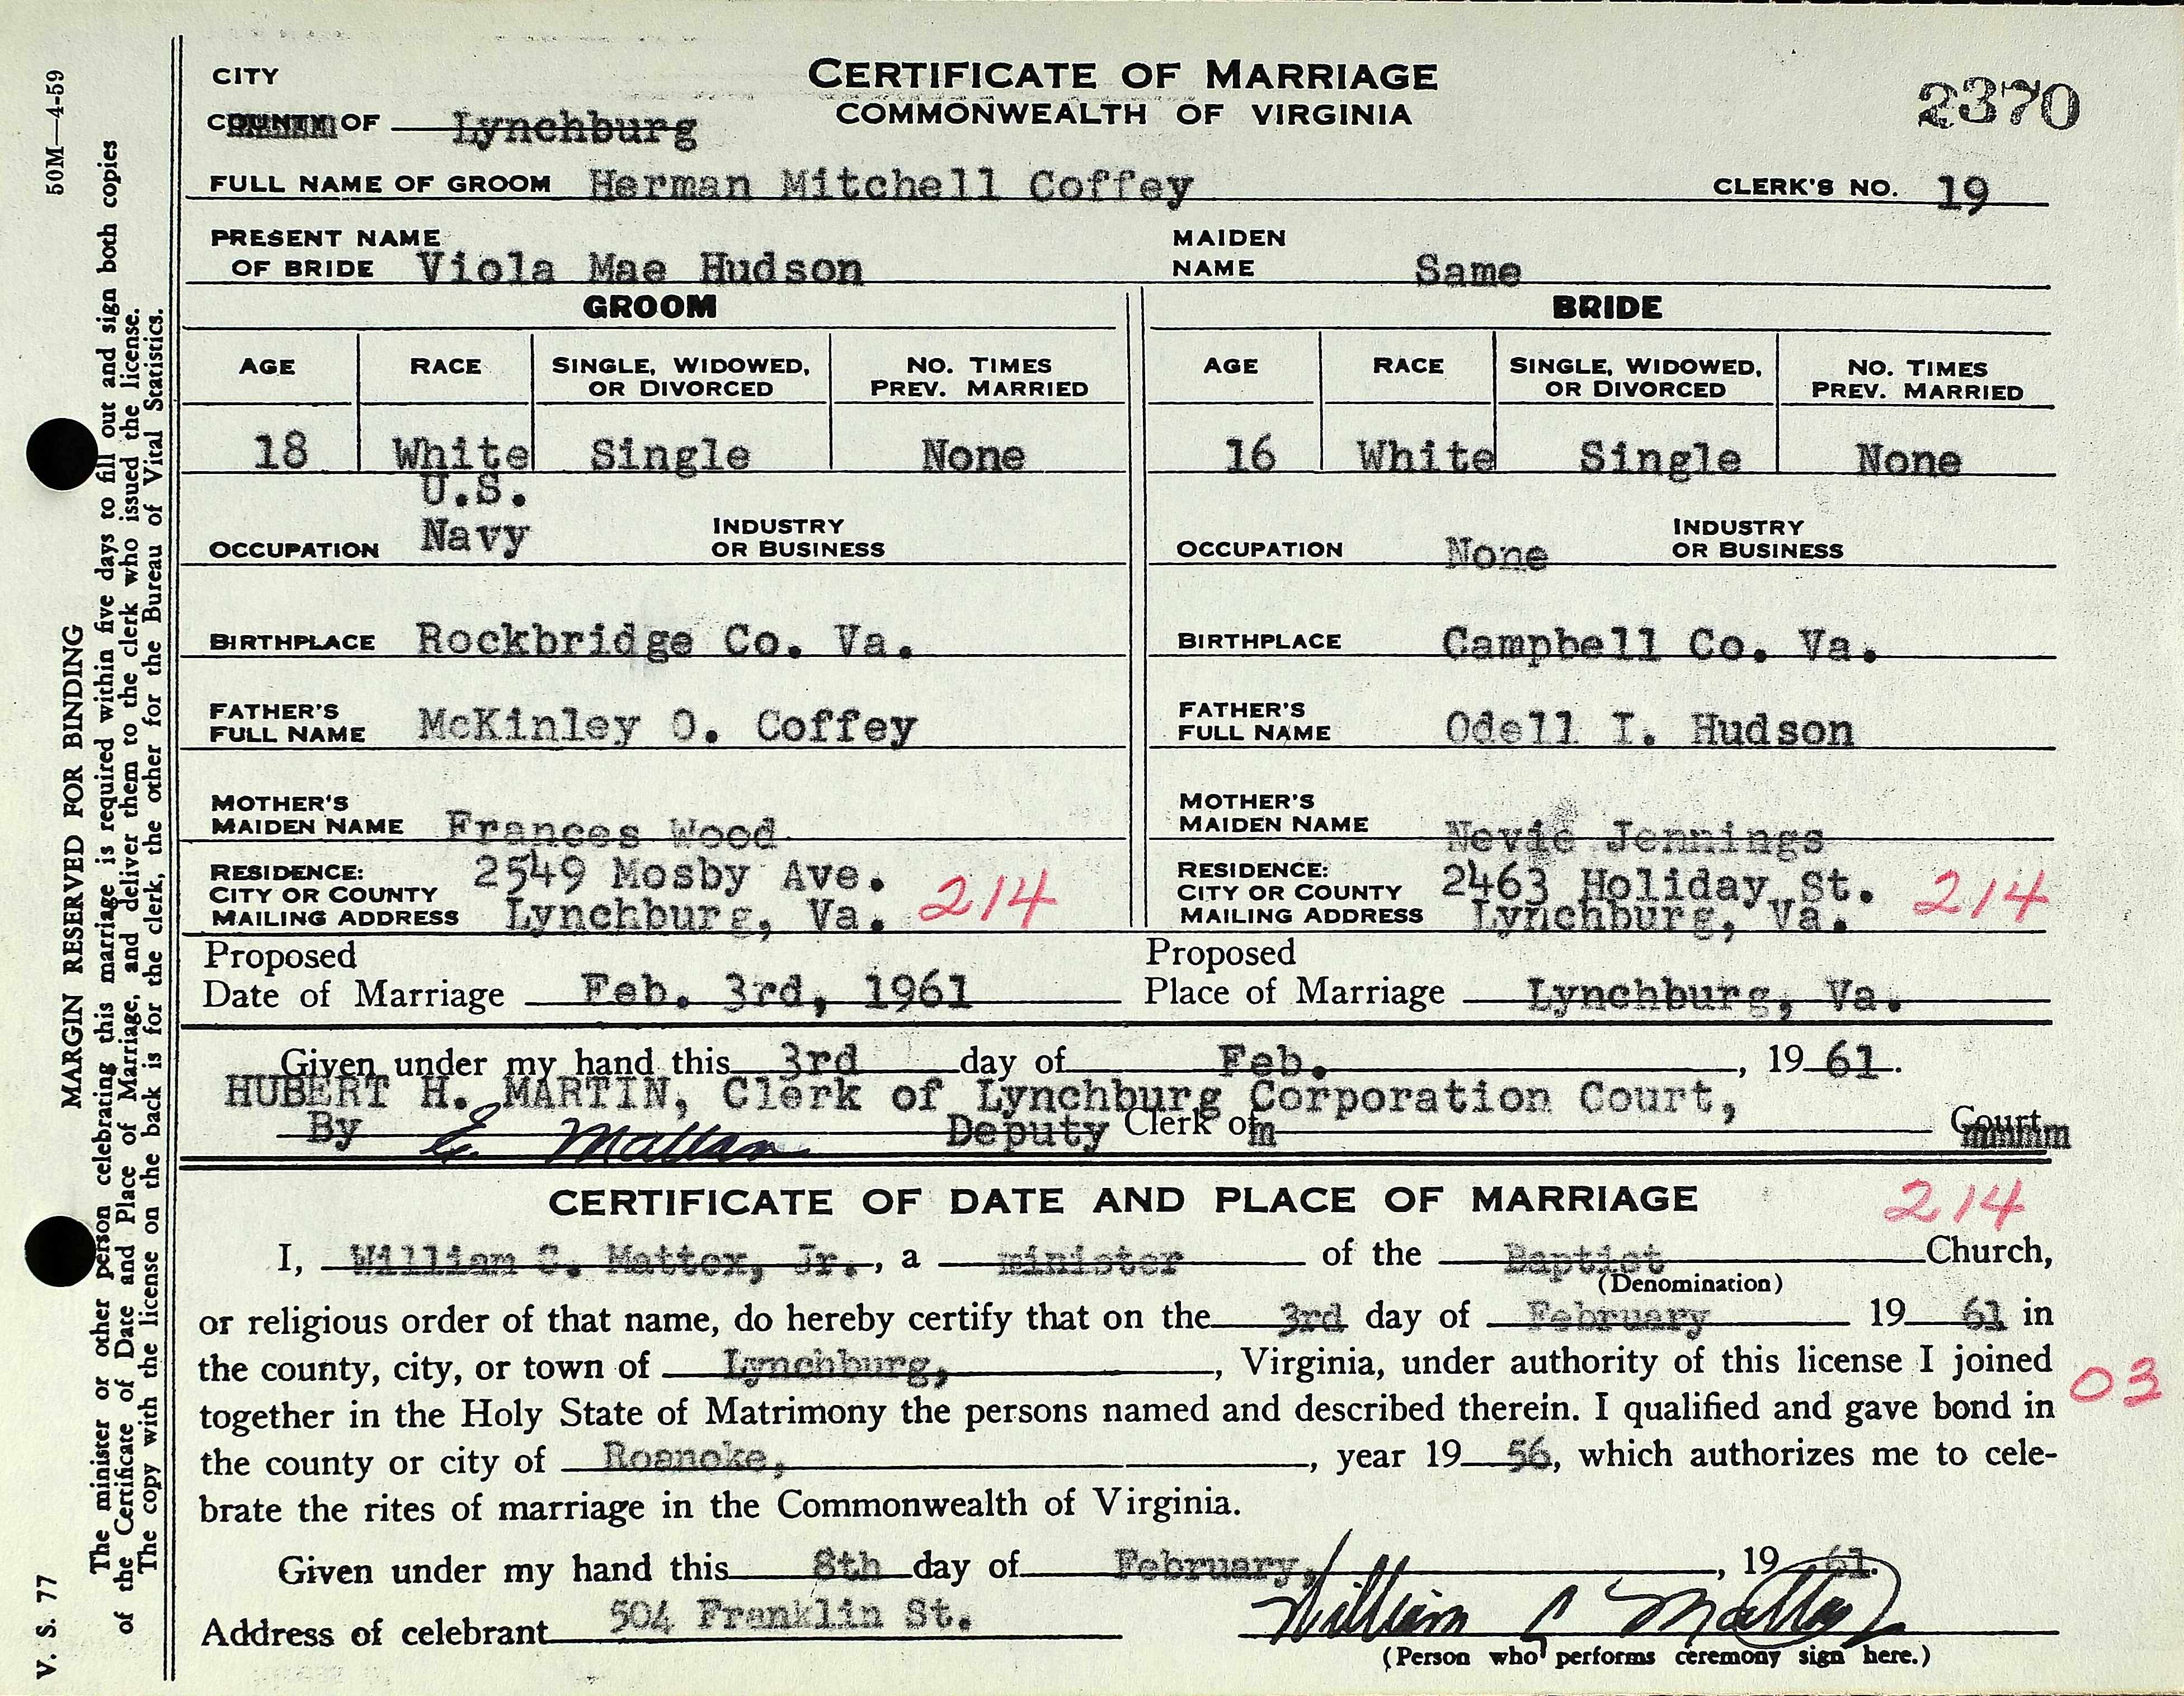 CITY
CERTIFICATE OF MARRIAGE
COMMONWEALTH OF VIRGINIA
2370
COUNTY OF Lynchburg
FULL NAME OF GROOM Herman Mitchell Coffey CLERK'S NO. 19
PRESENT NAME OF BRIDE Viola Mae Hudson MAIDEN NAME Same
GROOM BRIDE
AGE RACE SINGLE, WIDOWED, OR DIVORCED NO. TIMES PREV. MARRIED AGE RACE SINGLE, WIDOWED, OR DIVORCED NO. TIMES PREV. MARRIED
18 White Single None 16 White Single None
OCCUPATION U.S. Navy INDUSTRY OR BUSINESS OCCUPATION None INDUSTRY OR BUSINESS
BIRTHPLACE Rockbridge Co. Va. BIRTHPLACE Campbell Co. Va.
FATHER'S FULL NAME McKinley O. Coffey FATHER'S FULL NAME Odell I. Hudson
MOTHER'S MAIDEN NAME Frances Wood MOTHER'S MAIDEN NAME Nevie Jennings
RESIDENCE: 2549 Mosby Ave. RESIDENCE: 2463 Holiday St.
CITY OR COUNTY 214 CITY OR COUNTY 214
MAILING ADDRESS Lynchburg, Va. MAILING ADDRESS Lynchburg, Va.
Proposed Date of Marriage Feb. 3rd, 1961 Proposed Place of Marriage Lynchburg, Va.
Given under my hand this 3rd day of Feb. , 19 61.
HUBERT H. MARTIN, Clerk of Lynchburg Corporation Court,
By E Deputy Clerk of Court
CERTIFICATE OF DATE AND PLACE OF MARRIAGE 214
I, William C. Mattox, Jr., a minister of the Baptist Church,
(Denomination)
or religious order of that name, do hereby certify that on the 3rd day of February 19 61 in
the county, city, or town of Lynchburg, , Virginia, under authority of this license I joined
03
together in the Holy State of Matrimony the persons named and described therein. I qualified and gave bond in
the county or city of Roanoke, , year 19 56, which authorizes me to cele-
brate the rites of marriage in the Commonwealth of Virginia.
Given under my hand this 8th day of February, , 19 61.
Address of celebrant 504 Franklin St. William C Mattox Jr
(Person who performs ceremony sign here.)
V. S. 77 MARGIN RESERVED FOR BINDING 50M—4-59
The minister or other person celebrating this marriage is required within five days to fill out and sign both copies
of the Certificate of Date and Place of Marriage, and deliver them to the clerk who issued the license.
The copy with the license on the back is for the clerk, the other for the Bureau of Vital Statistics.